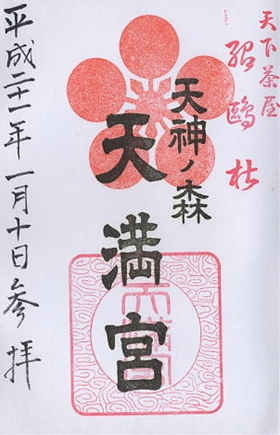 天下茶屋
紹鴎杜
天神ノ森
天満宮
平成二十一年一月十日参拝
天満宮